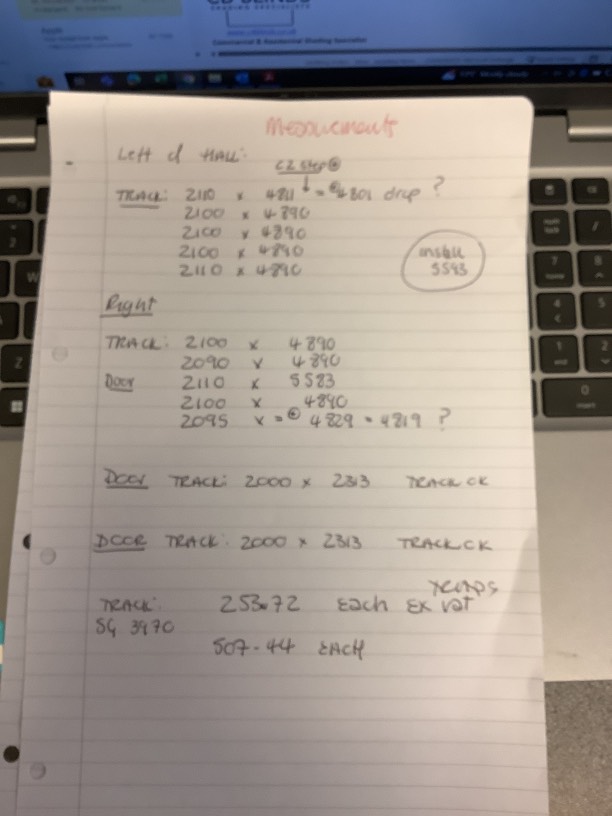 CD BLINDS
SHADING SPECIALISTS
Commercial & Residential Shading Specialist
Measurements
Left of HALL:
TRACK: 2110 x 4811 = 4801 drop ?
2100 x 4890
2100 x 4890
2100 x 4890
2110 x 4890
install
5593
Right
TRACK: 2100 x 4890
2090 x 4890
Door 2110 x 5583
2100 x 4890
2095 x = 4829 = 4819 ?
Door TRACK: 2000 x 2313 TRACK OK
DOOR TRACK: 2000 x 2313 TRACK OK
TRACK: 253.72 Each Ex vat
SG 3970
507-44 EACH